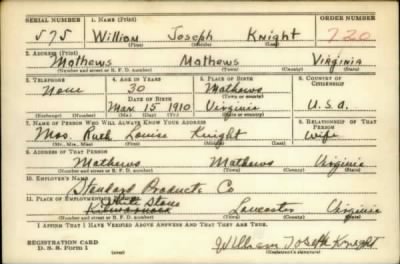 SERIAL NUMBER 1. NAME (Print) ORDER NUMBER
575 William Joseph Knight 720
(First) (Middle) (Last)
2. ADDRESS (Print)
Mathews Mathews Virginia
(Number and street or R. F. D. number) (Town) (County) (State)
3. TELEPHONE 4. AGE IN YEARS 5. PLACE OF BIRTH 6. COUNTRY OF CITIZENSHIP
None 30 Mathews
DATE OF BIRTH (Town or county)
Mar. 15 1910 Virginia U.S.a.
(Exchange) (Number) (Mo.) (Day) (Yr.) (State or country)
7. NAME OF PERSON WHO WILL ALWAYS KNOW YOUR ADDRESS 8. RELATIONSHIP OF THAT PERSON
Mrs. Ruth Louise Knight Wife
(Mr., Mrs., Miss) (First) (Middle) (Last)
9. ADDRESS OF THAT PERSON
Mathews Mathews Virginia
(Number and street or R. F. D. number) (Town) (County) (State)
10. EMPLOYER'S NAME
Standard Products Co
11. PLACE OF EMPLOYMENT OR BUSINESS
White Stone
Kilmarnock Lancaster Virginia
(Number and street or R. F. D. number) (Town) (County) (State)
I AFFIRM THAT I HAVE VERIFIED ABOVE ANSWERS AND THAT THEY ARE TRUE.
REGISTRATION CARD
D. S. S. Form 1 (over) William Joseph Knight
(Registrant's signature)